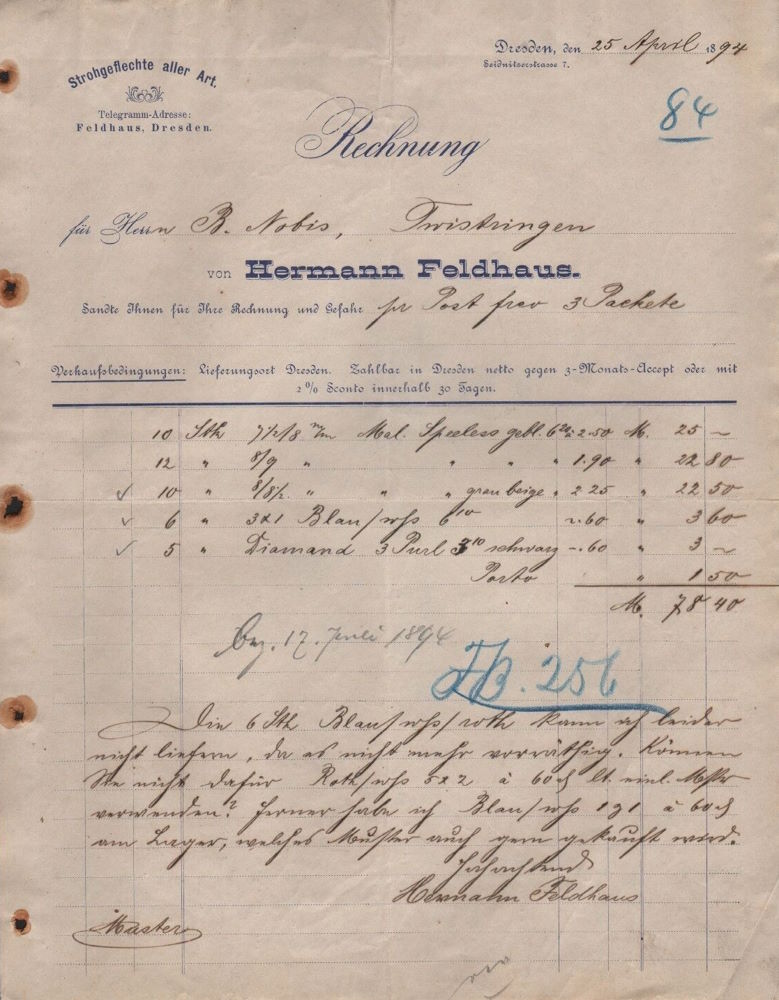 Dresden, den 25 April 1894
Seidnitzerstrasse 7.
Strohgeflechte aller Art.
Telegramm-Adresse:
Feldhaus, Dresden.
84
Rechnung
für Herrn B. Nobis, Twistringen
von Hermann Feldhaus.
Sandte Ihnen für Ihre Rechnung und Gefahr pr Post frco 3 Packete
Verkaufsbedingungen: Lieferungsort Dresden. Zahlbar in Dresden netto gegen 3-Monats-Accept oder mit
2% Sconto innerhalb 30 Tagen.
10 Stk 7 1/2/8 m/m Mal. gebl. 2.50 M. 25 ~
12 " 8/9 " " " " 1.90 " 22 80
10 " 8/8 1/2 " " " grau beige " 2 25 " 22 50
6 " 3x1 Blau/wß 6 10 -.60 " 3 60
5 " Diamand 3 Purl 3 10 schwarz -.60 " 3 ~
Porto " 1 50
M. 78 40
Bez. 17. Juli 1894
256
Die 6 Stk Blau/wß/roth kann ich leider
nicht liefern, da es nicht mehr vorräthig. Können
Sie nicht dafür Roth/wß 5x2 à 60 ₰ lt. einl. Mstr
verwenden? Ferner habe ich Blau/wß 1x1 à 60 ₰
am Lager, welches Muster auch gern gekauft wird.
Hochachtend
Hermann Feldhaus
Muster